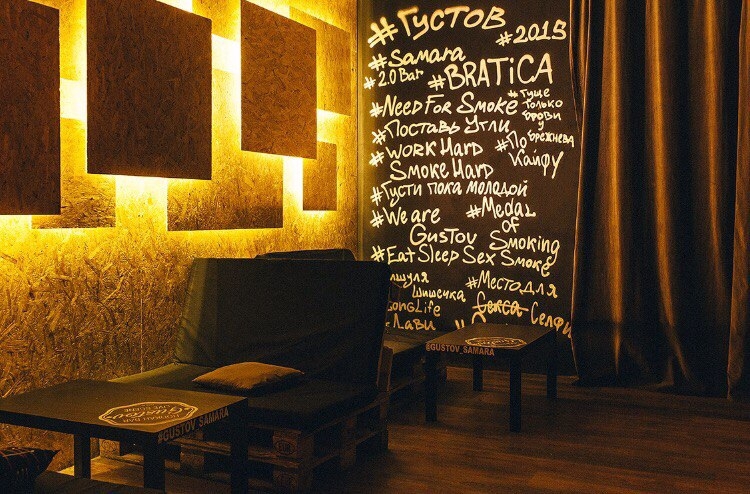 #ГУСТОВ
#2015
#Samara
#2.0 Bar
#BRATiCA
#Need For Smoke
#Гуще
только
брови
у
Брежнева
#Поставь Угли
#По
Кайфу
#Work Hard
Smoke Hard
#Густи пока молодой
#We are
Gustov
#Medal
of
Smoking
#Eat Sleep Sex Smoke
Шишечка
LongLife
Лави
#Место для
Секса Селфи
#GUSTOV_SAMARA
HOOKAH BAR
Gustov
#GUSTOV_SAMARA